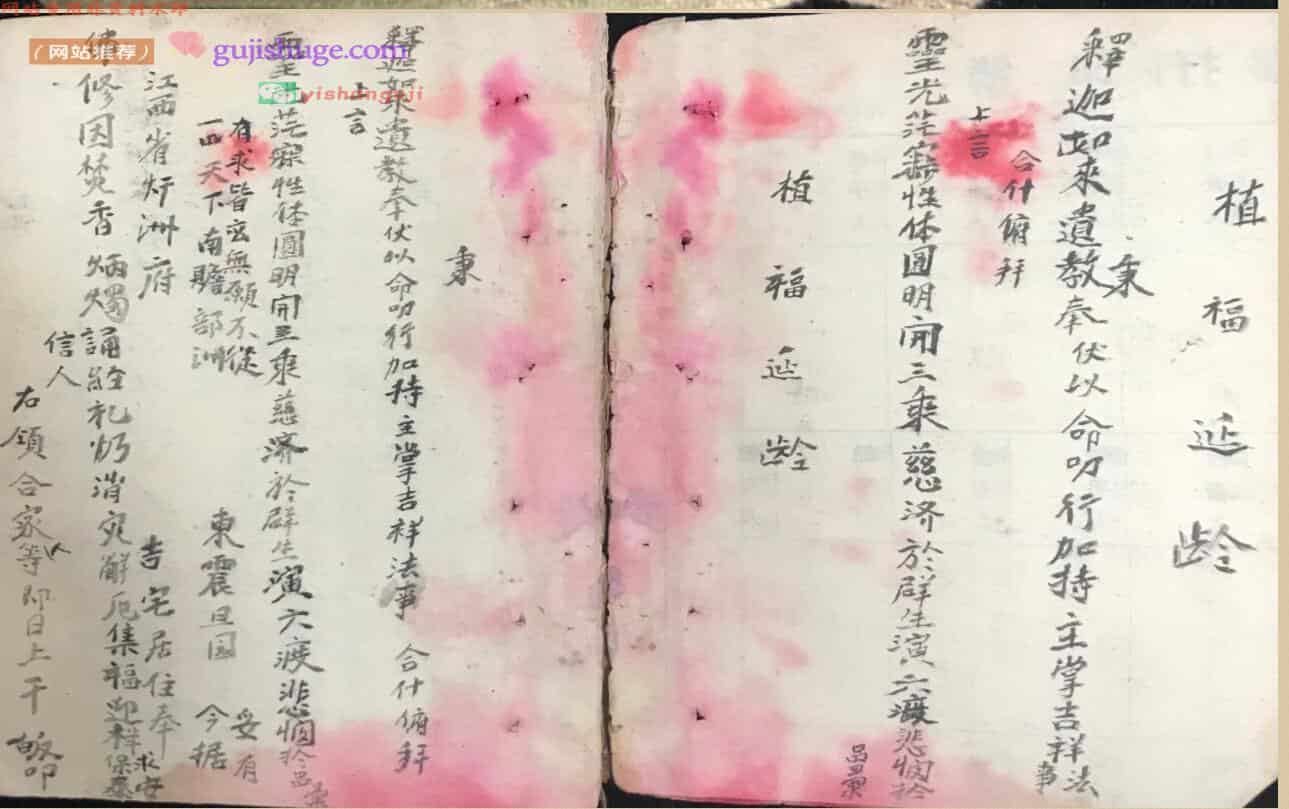 植福延齡
秉
釋迦如來遺教奉伏以命叨行加持主掌吉祥法事
合什俯拜
上言
靈光茫寂性体圓明開三乘慈济於群生演六渡悲悯於品彙
植福延齡
秉
釋迦如來遺教奉伏以命叨行加持主掌吉祥法事 合什俯拜
上言
聖光茫寂性体圓明開三乘慈济於群生演六渡悲悯於品彙
有求皆应無願不從 妥有
一四天下南贍部洲 東震旦国 今据
江西省 洲府 吉宅居住奉
修因焚香炳燭誦經礼 消灾解厄集福迎祥保泰求安
信人
右領合家人等即日上干 叩
网站推荐
gujishuge.com
yishangsji